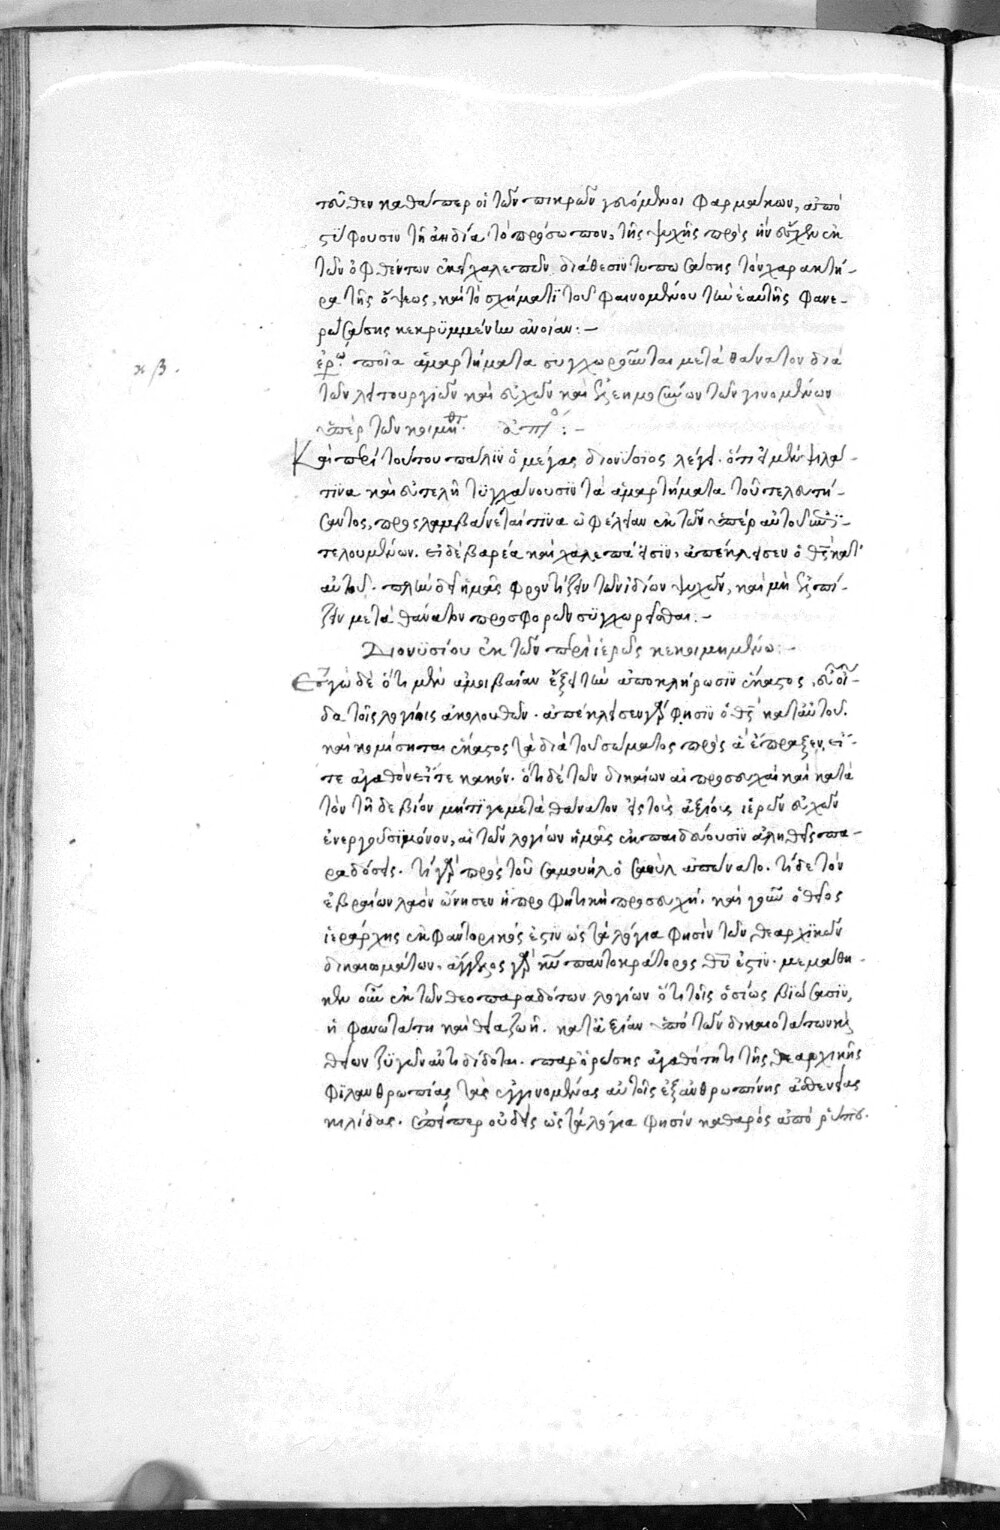 τοῦθεν καθάπερ οἱ τῶν πικρῶν γευόμενοι φαρμάκων, ἀπο
στύφουσιν τῇ ἀηδία τὸ πρόσωπον, τῆς ψυχῆς πρὸς ἣν ἔσχεν ἐκ
τῶν ὀφθέντων χαλεπῶν διάθεσιν τυπωσάσης τὸν χαρακτῆ-
ρα τῆς ὄψεως, καὶ τὸ σχήματι τοῦ φαινομένου τὴν ἑαυτῆς φανε-
ρωσάσης κεκρυμμένην ἄνοιαν:-
κβ.
ἐρώ. ποῖα ἁμαρτήματα συγχωροῦνται μετὰ θάνατον διὰ
τῶν λειτουργιῶν καὶ εὐχῶν καὶ ἐλεημοσυνῶν τῶν γινομένων
ὑπὲρ τῶν κοιμηθ. ἀπό:-
Καὶ περὶ τούτου πάλιν ὁ μέγας διονύσιος λέγει. ὅτι εἰ μὲν ψιλά
τινα καὶ εὐτελῆ τυγχάνουσιν τὰ ἁμαρτήματα τοῦ τελευτή-
σαντος, προσλαμβάνεταί τινα ὠφέλειαν ἐκ τῶν ὑπὲρ αὐτοῦ
τελουμένων. εἰ δὲ βαρέα καὶ χαλεπά εἰσιν, ἀπέκλεισεν ὁ θς κατ'
αὐτοῦ. πλὴν δεῖ ἡμᾶς φροντίζειν τῶν ἰδίων ψυχῶν, καὶ μὴ ἐλπί-
ζειν μετὰ θάνατον προσφορῶν συγχωρεῖσθαι:-
Διονυσίου ἐκ τῶν περὶ ἱερῶς κεκοιμημένων:-
Ἐγὼ δὲ ὅτι μὲν ἀμοιβαίαν ἕξει τὴν ἀποκλήρωσιν ἕκαστος, εὖ οἶ-
δα τοῖς λογίοις ἀκολουθῶν. ἀπέκλεισεν γάρ φησιν ὁ θς κατ' αὐτοῦ.
καὶ κομίσηται ἕκαστος τὰ διὰ τοῦ σώματος πρὸς ἃ ἔπραξεν, εἴ-
τε ἀγαθὸν εἴτε κακόν. ὅτι δὲ τῶν δικαίων αἱ προσευχαὶ καὶ κατὰ
τὸν τῇδε βίον μήτι γε μετὰ θάνατον εἰς τοὺς ἀξίους ἱερῶν εὐχῶν
ἐνεργοῦσι μόνον, αἱ τῶν λογίων ἡμᾶς ἐκπαιδεύουσιν ἀληθεῖς πα-
ραδόσεις. τί γὰρ πρὸς τοῦ σαμουὴλ ὁ σαοὺλ ἀπώνατο. τί δε τὸν
ἑβραίων λαὸν ὤνησεν ἡ προφητικὴ προσευχή. καὶ γοῦν ὁ θεῖος
ἱεράρχης ἐκφαντορικός ἐστιν ὡς τὰ λόγια φησὶν τῶν θεαρχικῶν
δικαιωμάτων. ἄγγελος γὰρ κυ παντοκράτορος θυ ἐστιν. μεμάθη-
κεν οὖν ἐκ τῶν θεοπαραδότων λογίων ὅτι τοῖς ὁσίως βιώσασιν,
ἡ φανωτάτη καὶ θεία ζωὴ. κατ' ἀξίαν ὑπὸ τῶν δικαιοτάτων
θείων ζυγῶν ἀντιδίδοται. παρορώσης ἀγαθότητι τῆς θεαρχικῆς
φιλανθρωπίας τὰς ἐγγινομένας αὐτοῖς ἐξ ἀνθρωπίνης ἀσθενείας
κηλίδας. ἐπείπερ οὐδεὶς ὡς τὰ λόγια φησίν καθαρὸς ἀπὸ ῥύπου.